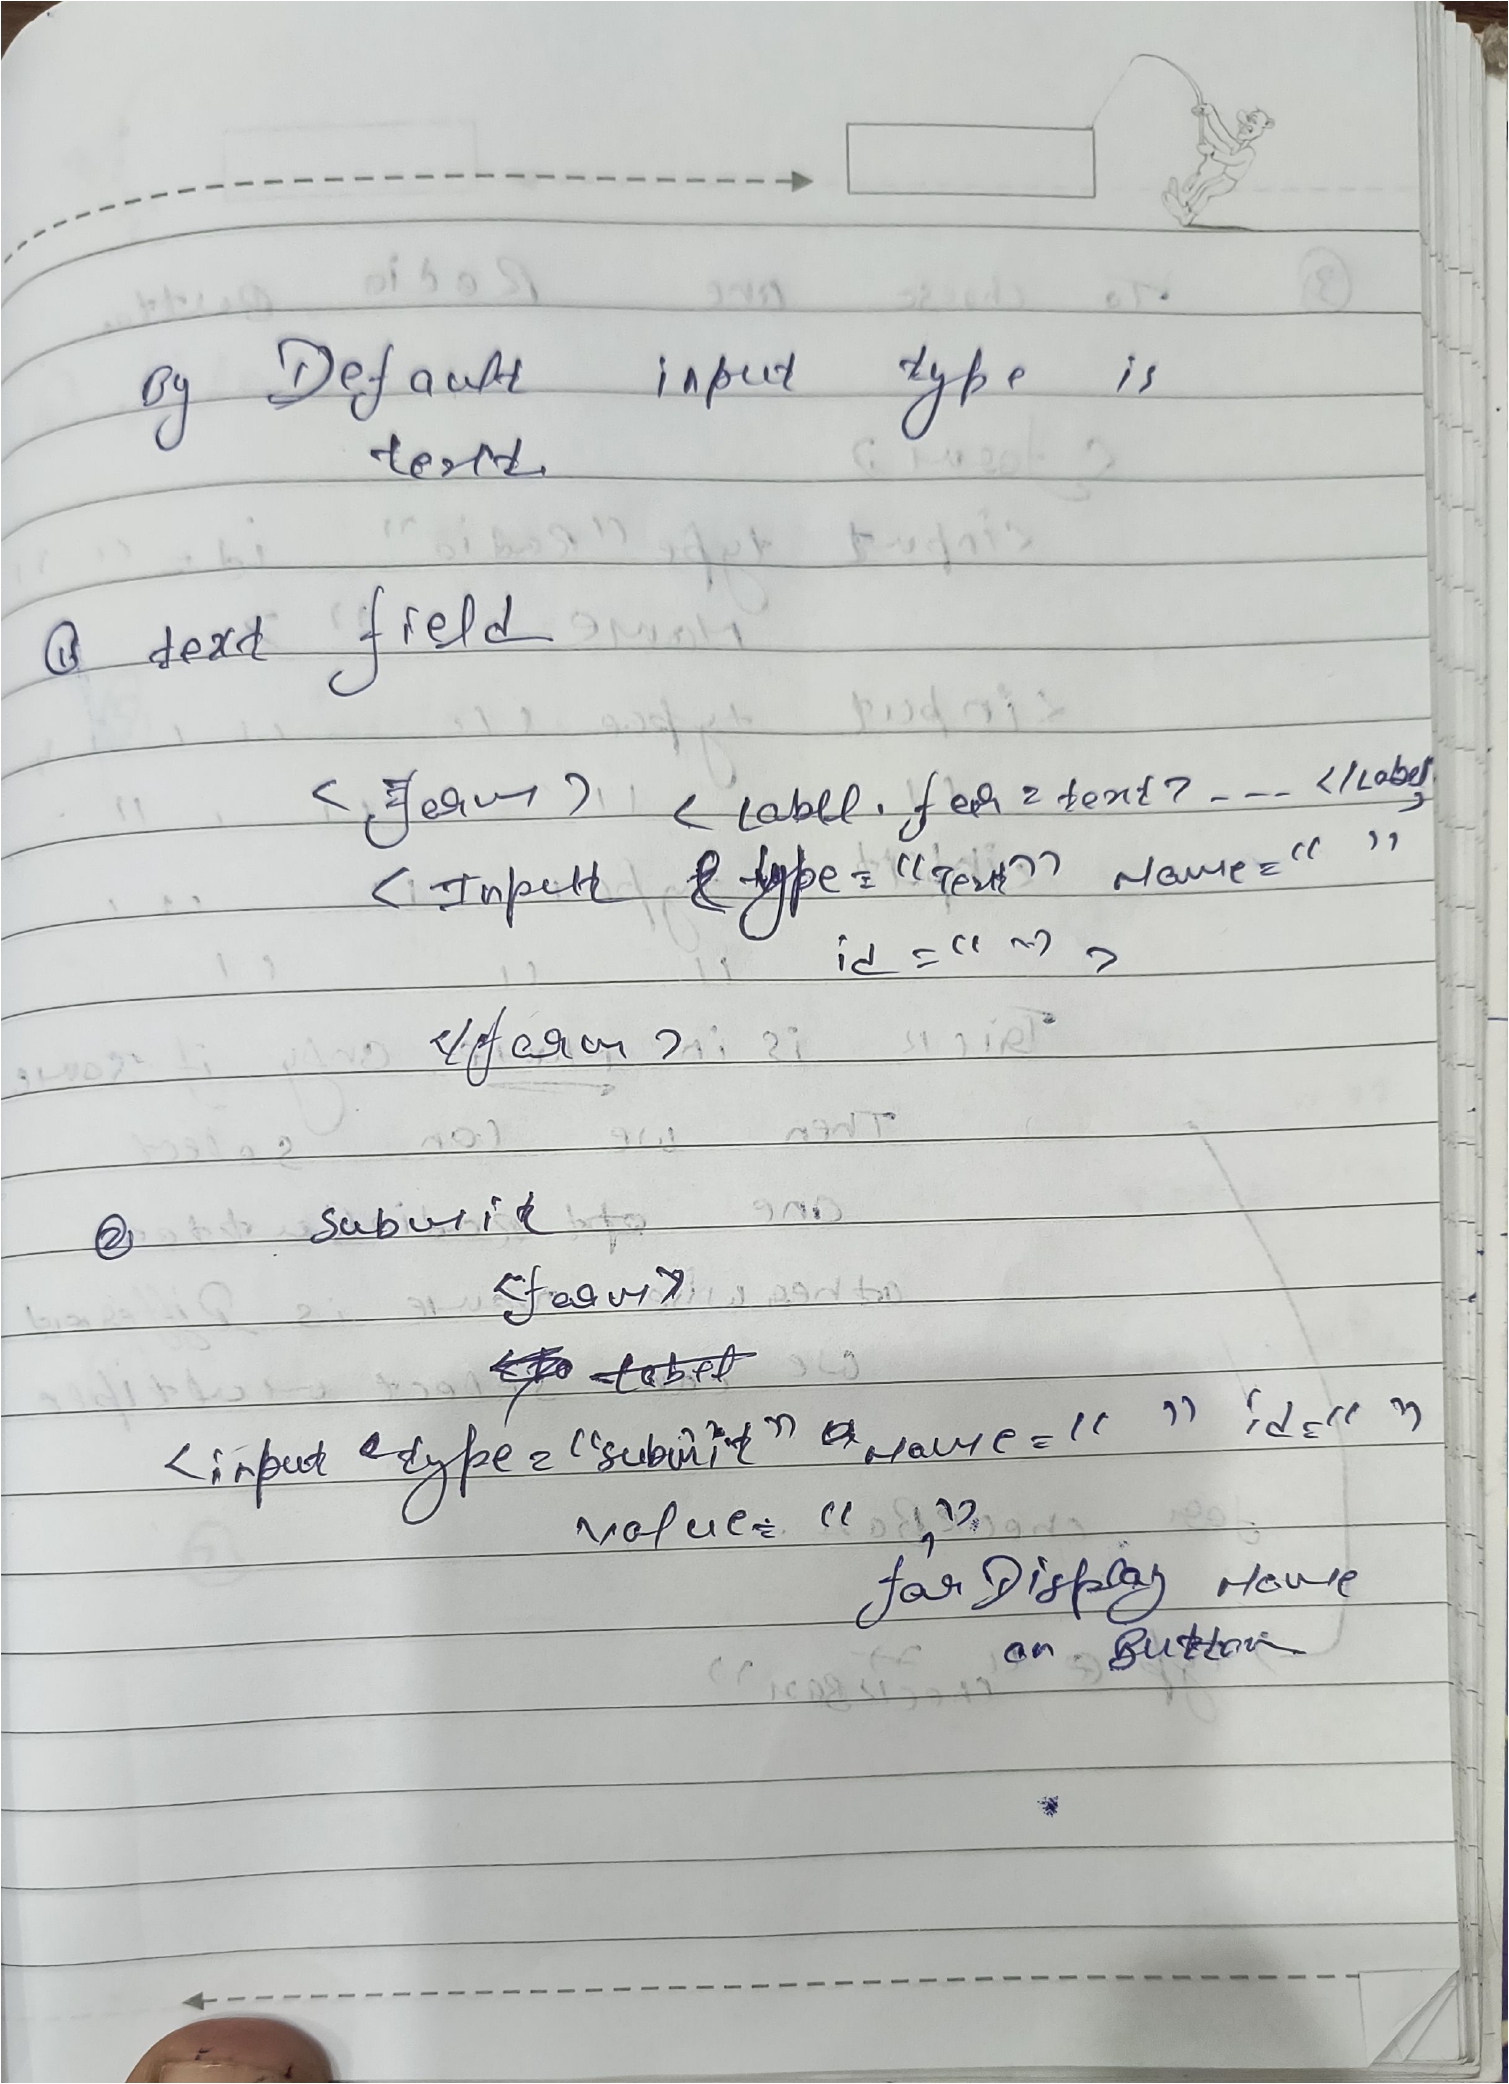 By Default input type is
text.
① text field
<form> <Label for = text> --- </Label>
<Input type = "Text" Name = " "
id = " " >
</form>
② submit
<form>
<input type = "submit" Name = " " id = " "
value = " "
for Display Name
on Button